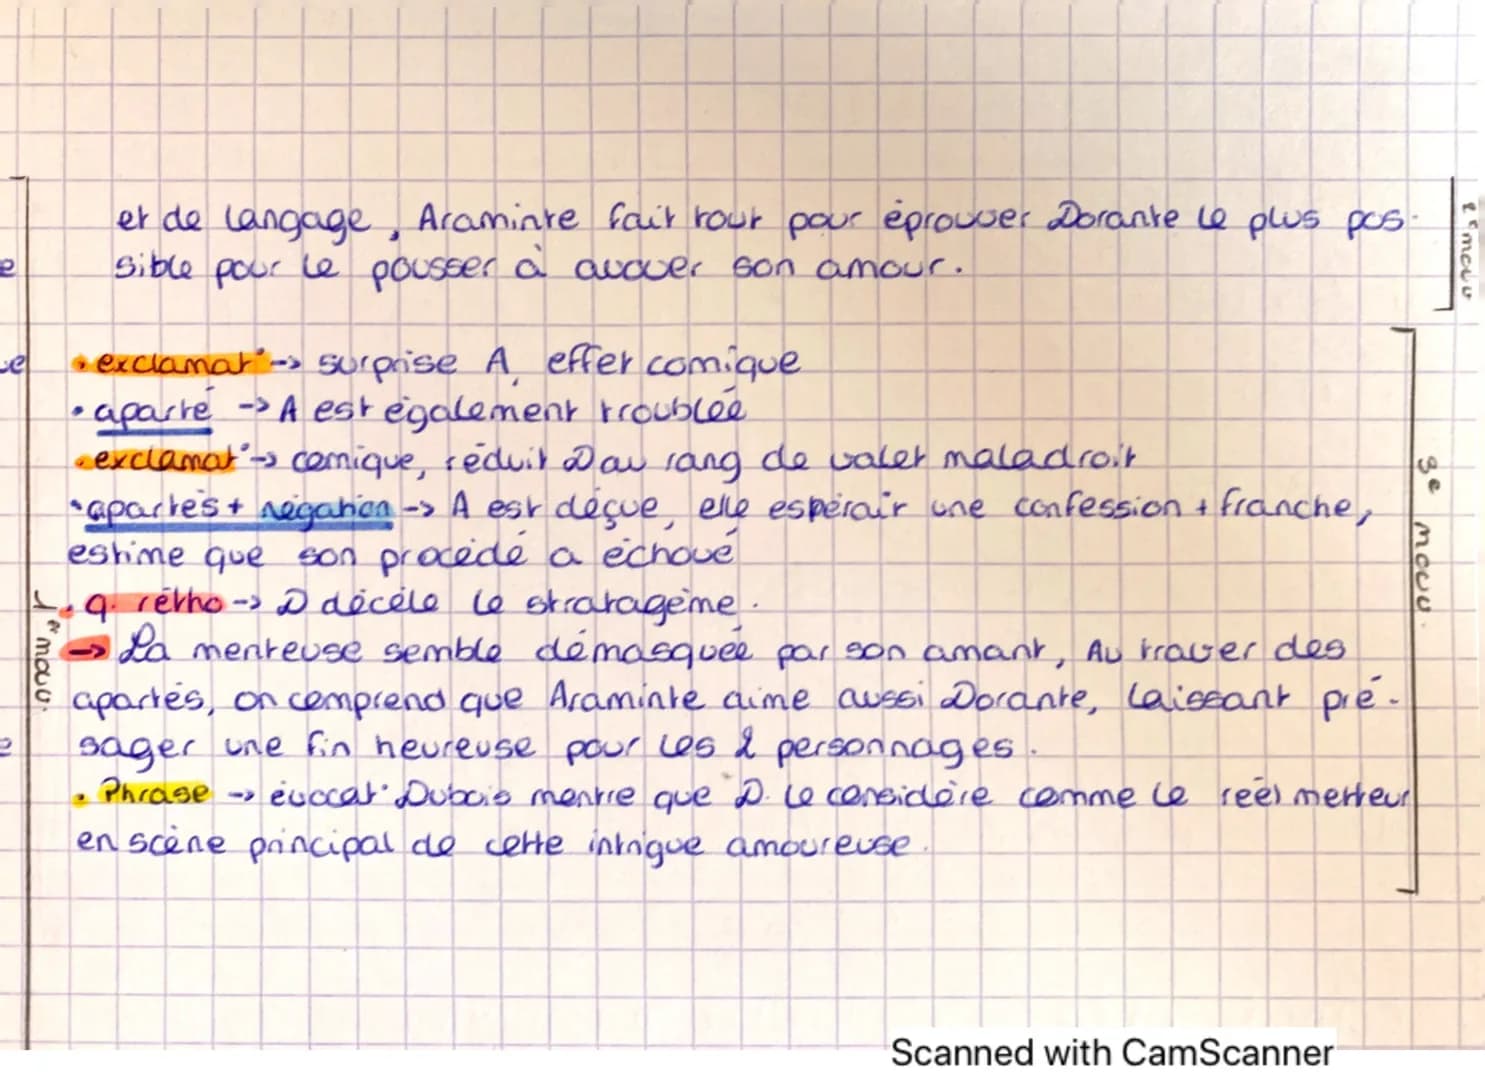 et de langage, Araminte fait tout pour éprouver Dorante le plus pos-
sible pour le pousser à avouer son amour.
2e mouv
e
ue
• exclamat° -> surprise A, effet comique
• aparté -> A est également troublée
• exclamat° -> comique, réduit D au rang de valet maladroit
• apartés + négation -> A est déçue, elle espérait une confession + franche,
estime que son procédé a échoué
• q. rétho -> D décèle le stratagème.
-> La menteuse semble démasquée par son amant, Au traver des
apartés, on comprend que Araminte aime aussi Dorante, laissant pré-
sager une fin heureuse pour les 2 personnages.
e
• Phrase -> évocat° Dubois montre que D. le considère comme le réel metteur
en scène principal de cette intrigue amoureuse.
3e mouv.
1er mouv.
Scanned with CamScanner